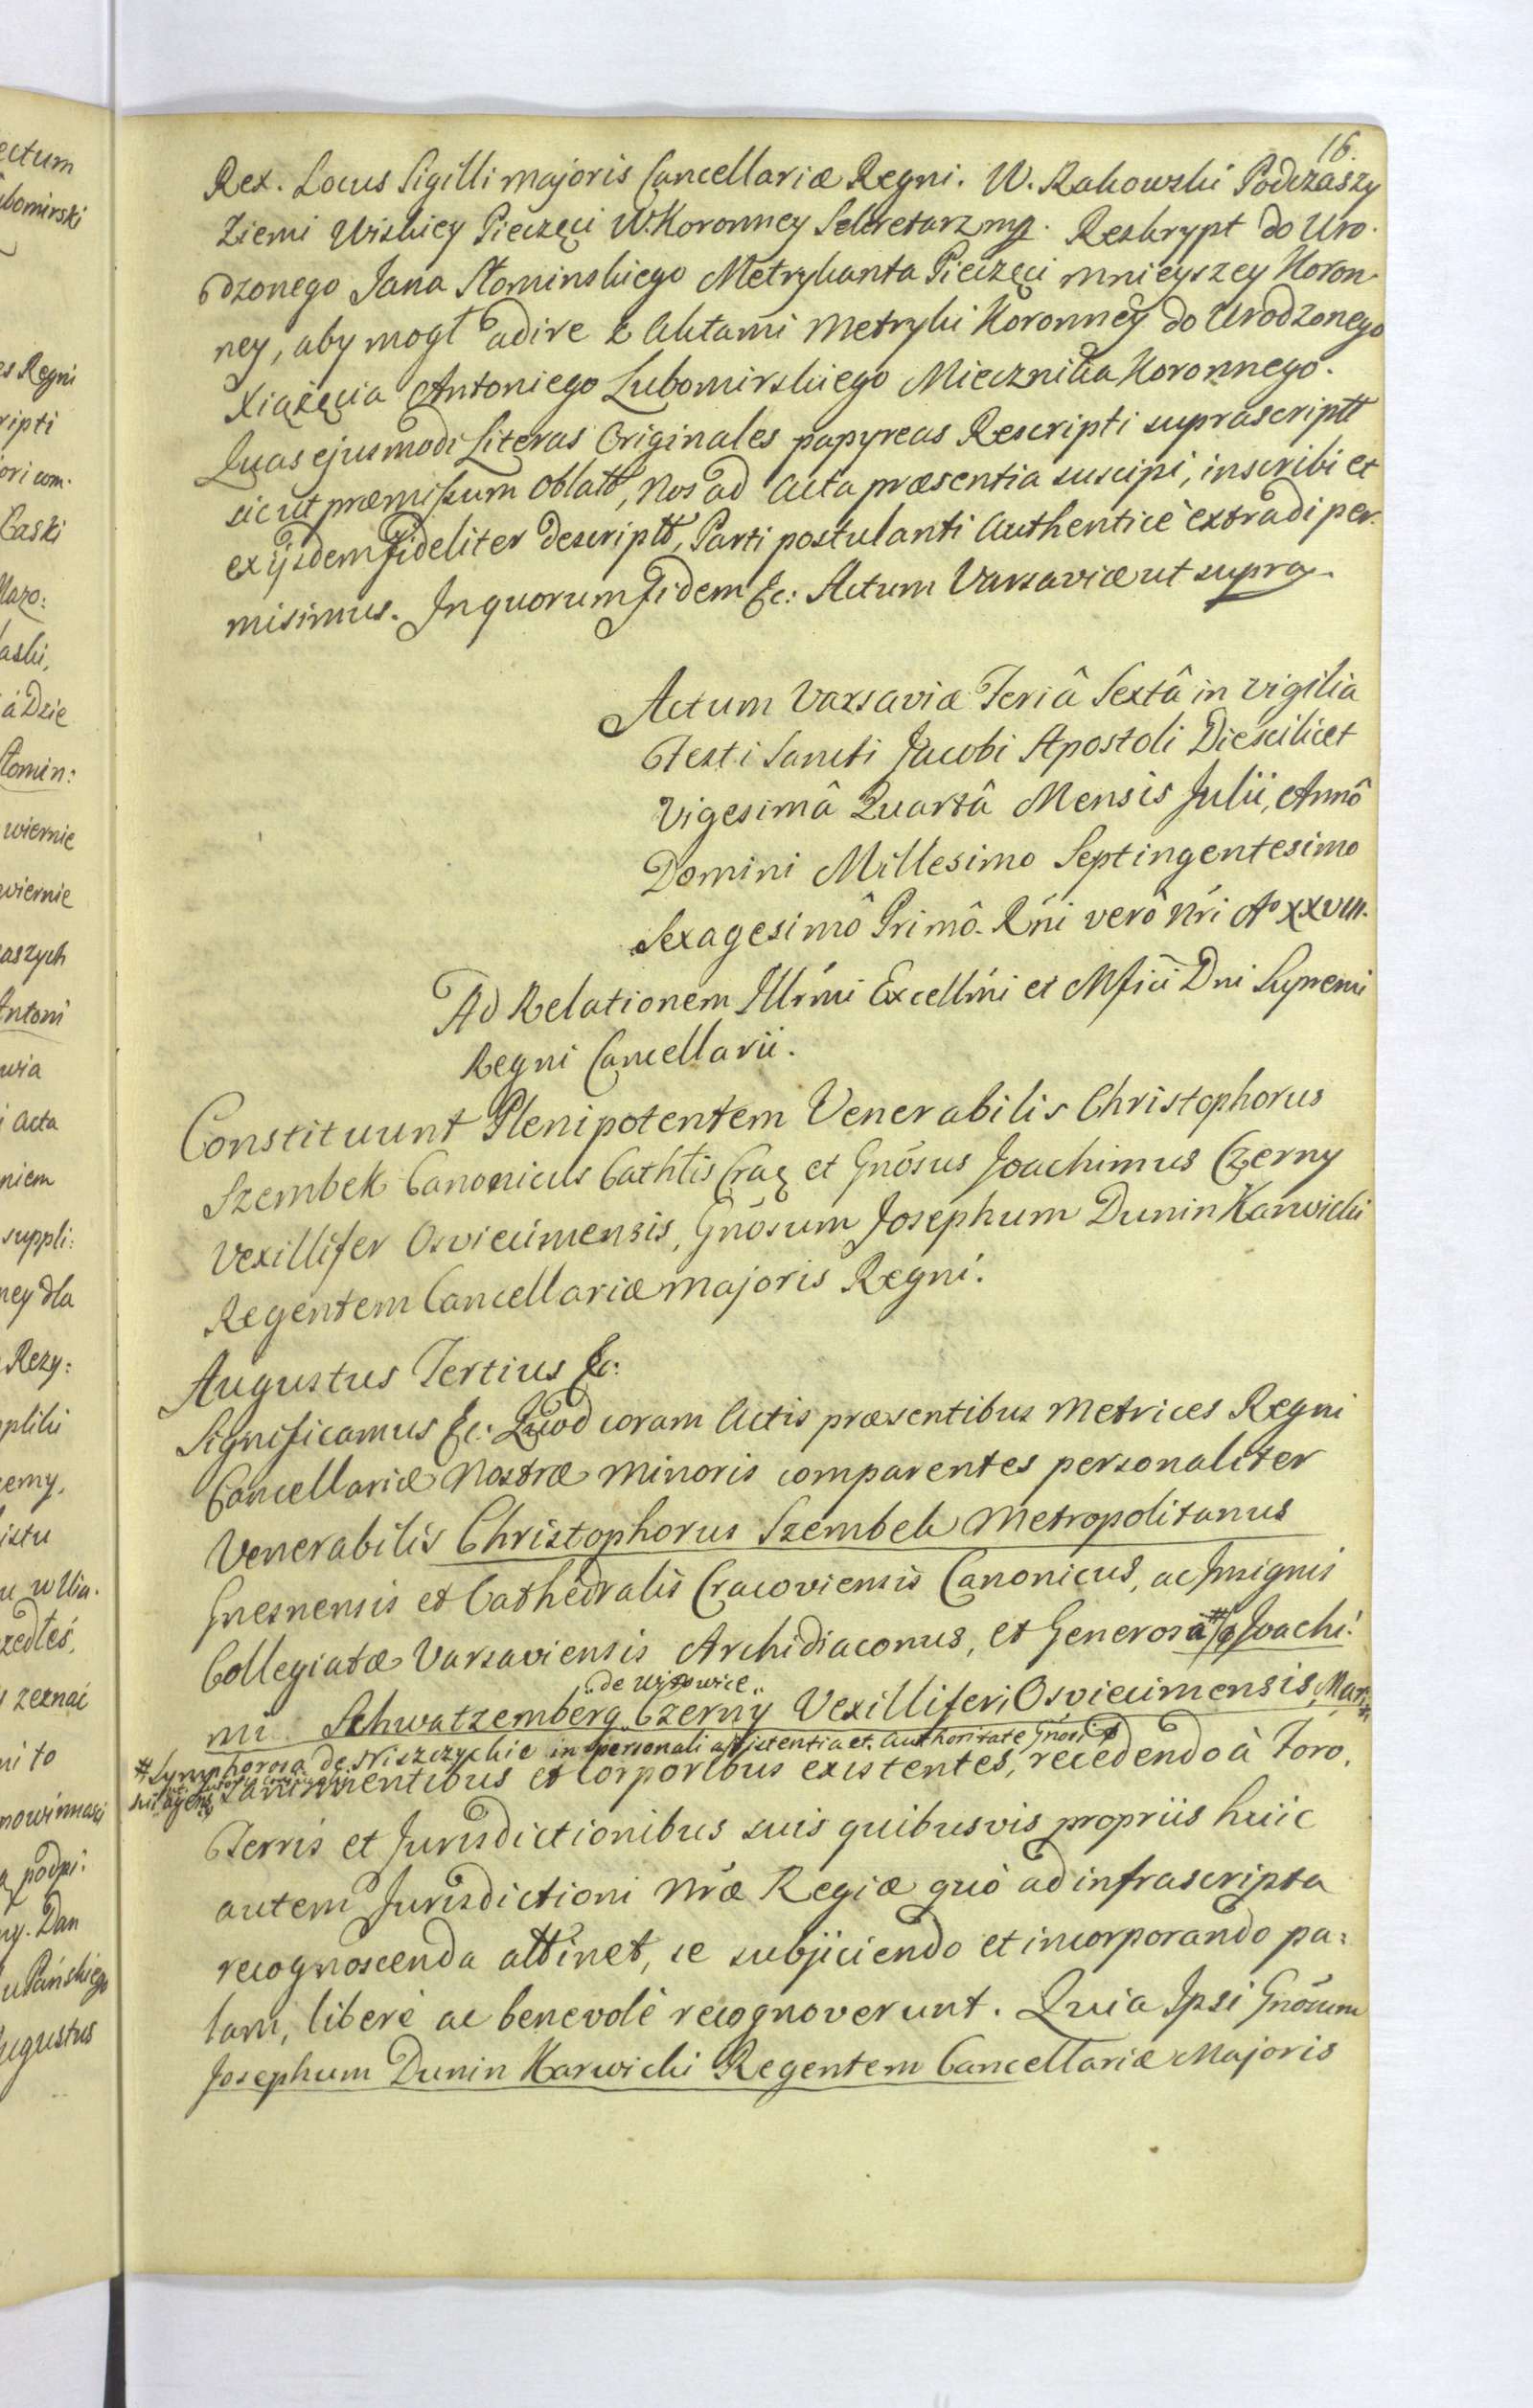 16.
Rex. Locus Sigilli majoris Cancellariæ Regni. W. Rakowski Podczaszy
Ziemi Wiskiey Pieczęci W. Koronney Sekretarz mp. Reskrypt do Uro.
dzonego Jana Słominskiego Metrykanta Pieczęci mnieyszey Koron
ney, aby mogł adire z Aktami Metryki Koronney do Urodzonego
Xiążęcia Antoniego Lubomirskiego Miecznika Koronnego.
Quas ejusmodi Literas Originales papyreas Rescripti suprascriptt
sicut præmissum oblatt, Nos ad Acta præsentia suscipi, inscribi et
ex ijsdem fideliter descriptt, Parti postulanti Authenticè extradi per.
misimus. In quorum Fidem &c: Actum Varsaviæ ut supra.
Actum Varsaviæ Feriâ Sextâ in Vigilia
Festi Sancti Jacobi Apostoli Die scilicet
Vigesimâ Quartâ Mensis Julii, Annô
Domini Millesimo Septingentesimo
Sexagesimô Primô. Rni verô Nri Ao XXVIII.
Ad Relationem Illrmi Excellmi et Mfici Dni Supremi
Regni Cancellarii.
Constituunt Plenipotentem Venerabilis Christophorus
Szembek Canonicus Cathlis Crac et Gnosus Joachimus Czerny
Vexillifer Osviecimensis, Gnosum Josephum Dunin Karwicki
Regentem Cancellariæ majoris Regni.
Augustus Tertius &c:
Significamus &c: Quod coram Actis præsentibus Metrices Regni
Cancellariæ Nostræ minoris comparentes personaliter
Venerabilis Christophorus Szembek Metropolitanus
Gnesnensis et Cathedralis Cracoviensis Canonicus, ac Insignis
Collegiatæ Varsaviensis Archidiaconus, et Generosa # Joachi:
de Witowice
mi Schwatzemberg Czerny Vexilliferi Osviecimensis Mari:
# Symphorosa de Niszczychie in personali assistentia et Authoritate Gnosi
sui agens Sani mentibus et corporibus existentes, recedendo à Foro,
Terris et Jurisdictionibus suis quibusvis propriis huic
autem Jurisdictioni Nræ Regiæ quò ad infrascripta
recognoscenda attinet, se subjiciendo et incorporando pa:
lam, liberè ac benevolè recognoverunt. Quia Ipsi Gnosum
Josephum Dunin Karwicki Regentem Cancellariæ Majoris